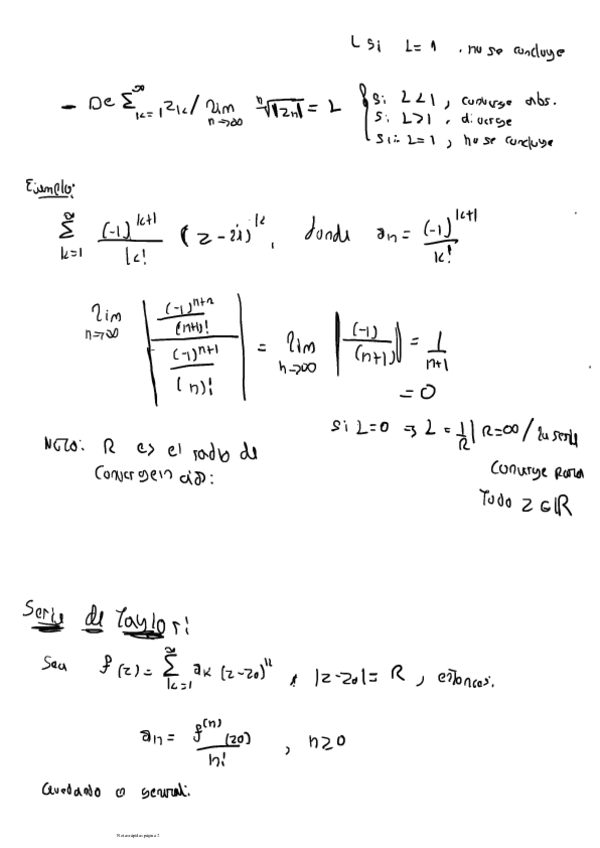 L si L = 1 . no se concluye
- De ∑_{k=1}^{∞} z_k / lim_{n→∞} ⁿ√|z_n| = L { si L < 1 , converge abs.
si L > 1 , diverge
si: L = 1 , no se concluye
Ejemplo:
∑_{k=1}^{∞} (-1)^{k+1} / k! (z - 2i)^k , donde a_n = (-1)^{k+1} / k!
lim_{n→∞} | ((-1)^{n+2} / (n+1)!) / ((-1)^{n+1} / (n)!) | = lim_{n→∞} | (-1) / (n+1) | = 1 / n+1
= 0
si L=0 ⇒ L = 1/R | R=∞ / la serie
Nota: R es el radio de
Convergencia:
Converge para
Todo z ∈ ℝ
Serie de Taylor:
Sea f(z) = ∑_{k=1}^{∞} a_k (z-z_0)^k , |z-z_0| = R , entonces.
a_n = f^{(n)}(z_0) / n! , n ≥ 0